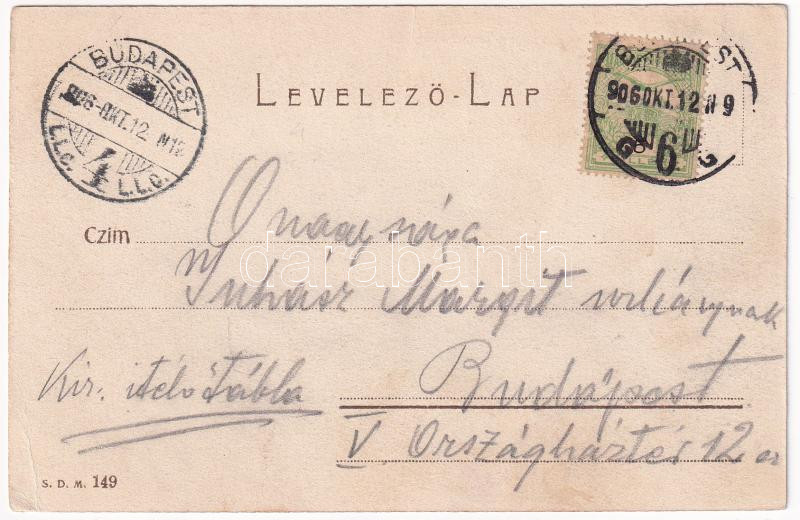 BUDAPEST
906 OKT. 12 N12
L.L.C. 4 L.L.C.
LEVELEZŐ-LAP
906 OKT. 12 N 9
6
Czim
Őnagysága
Juhász Margit urleánynak
Kir. itélő Tábla
Budapest
V. Országháztér 12
S. D. M. 149
darabanth